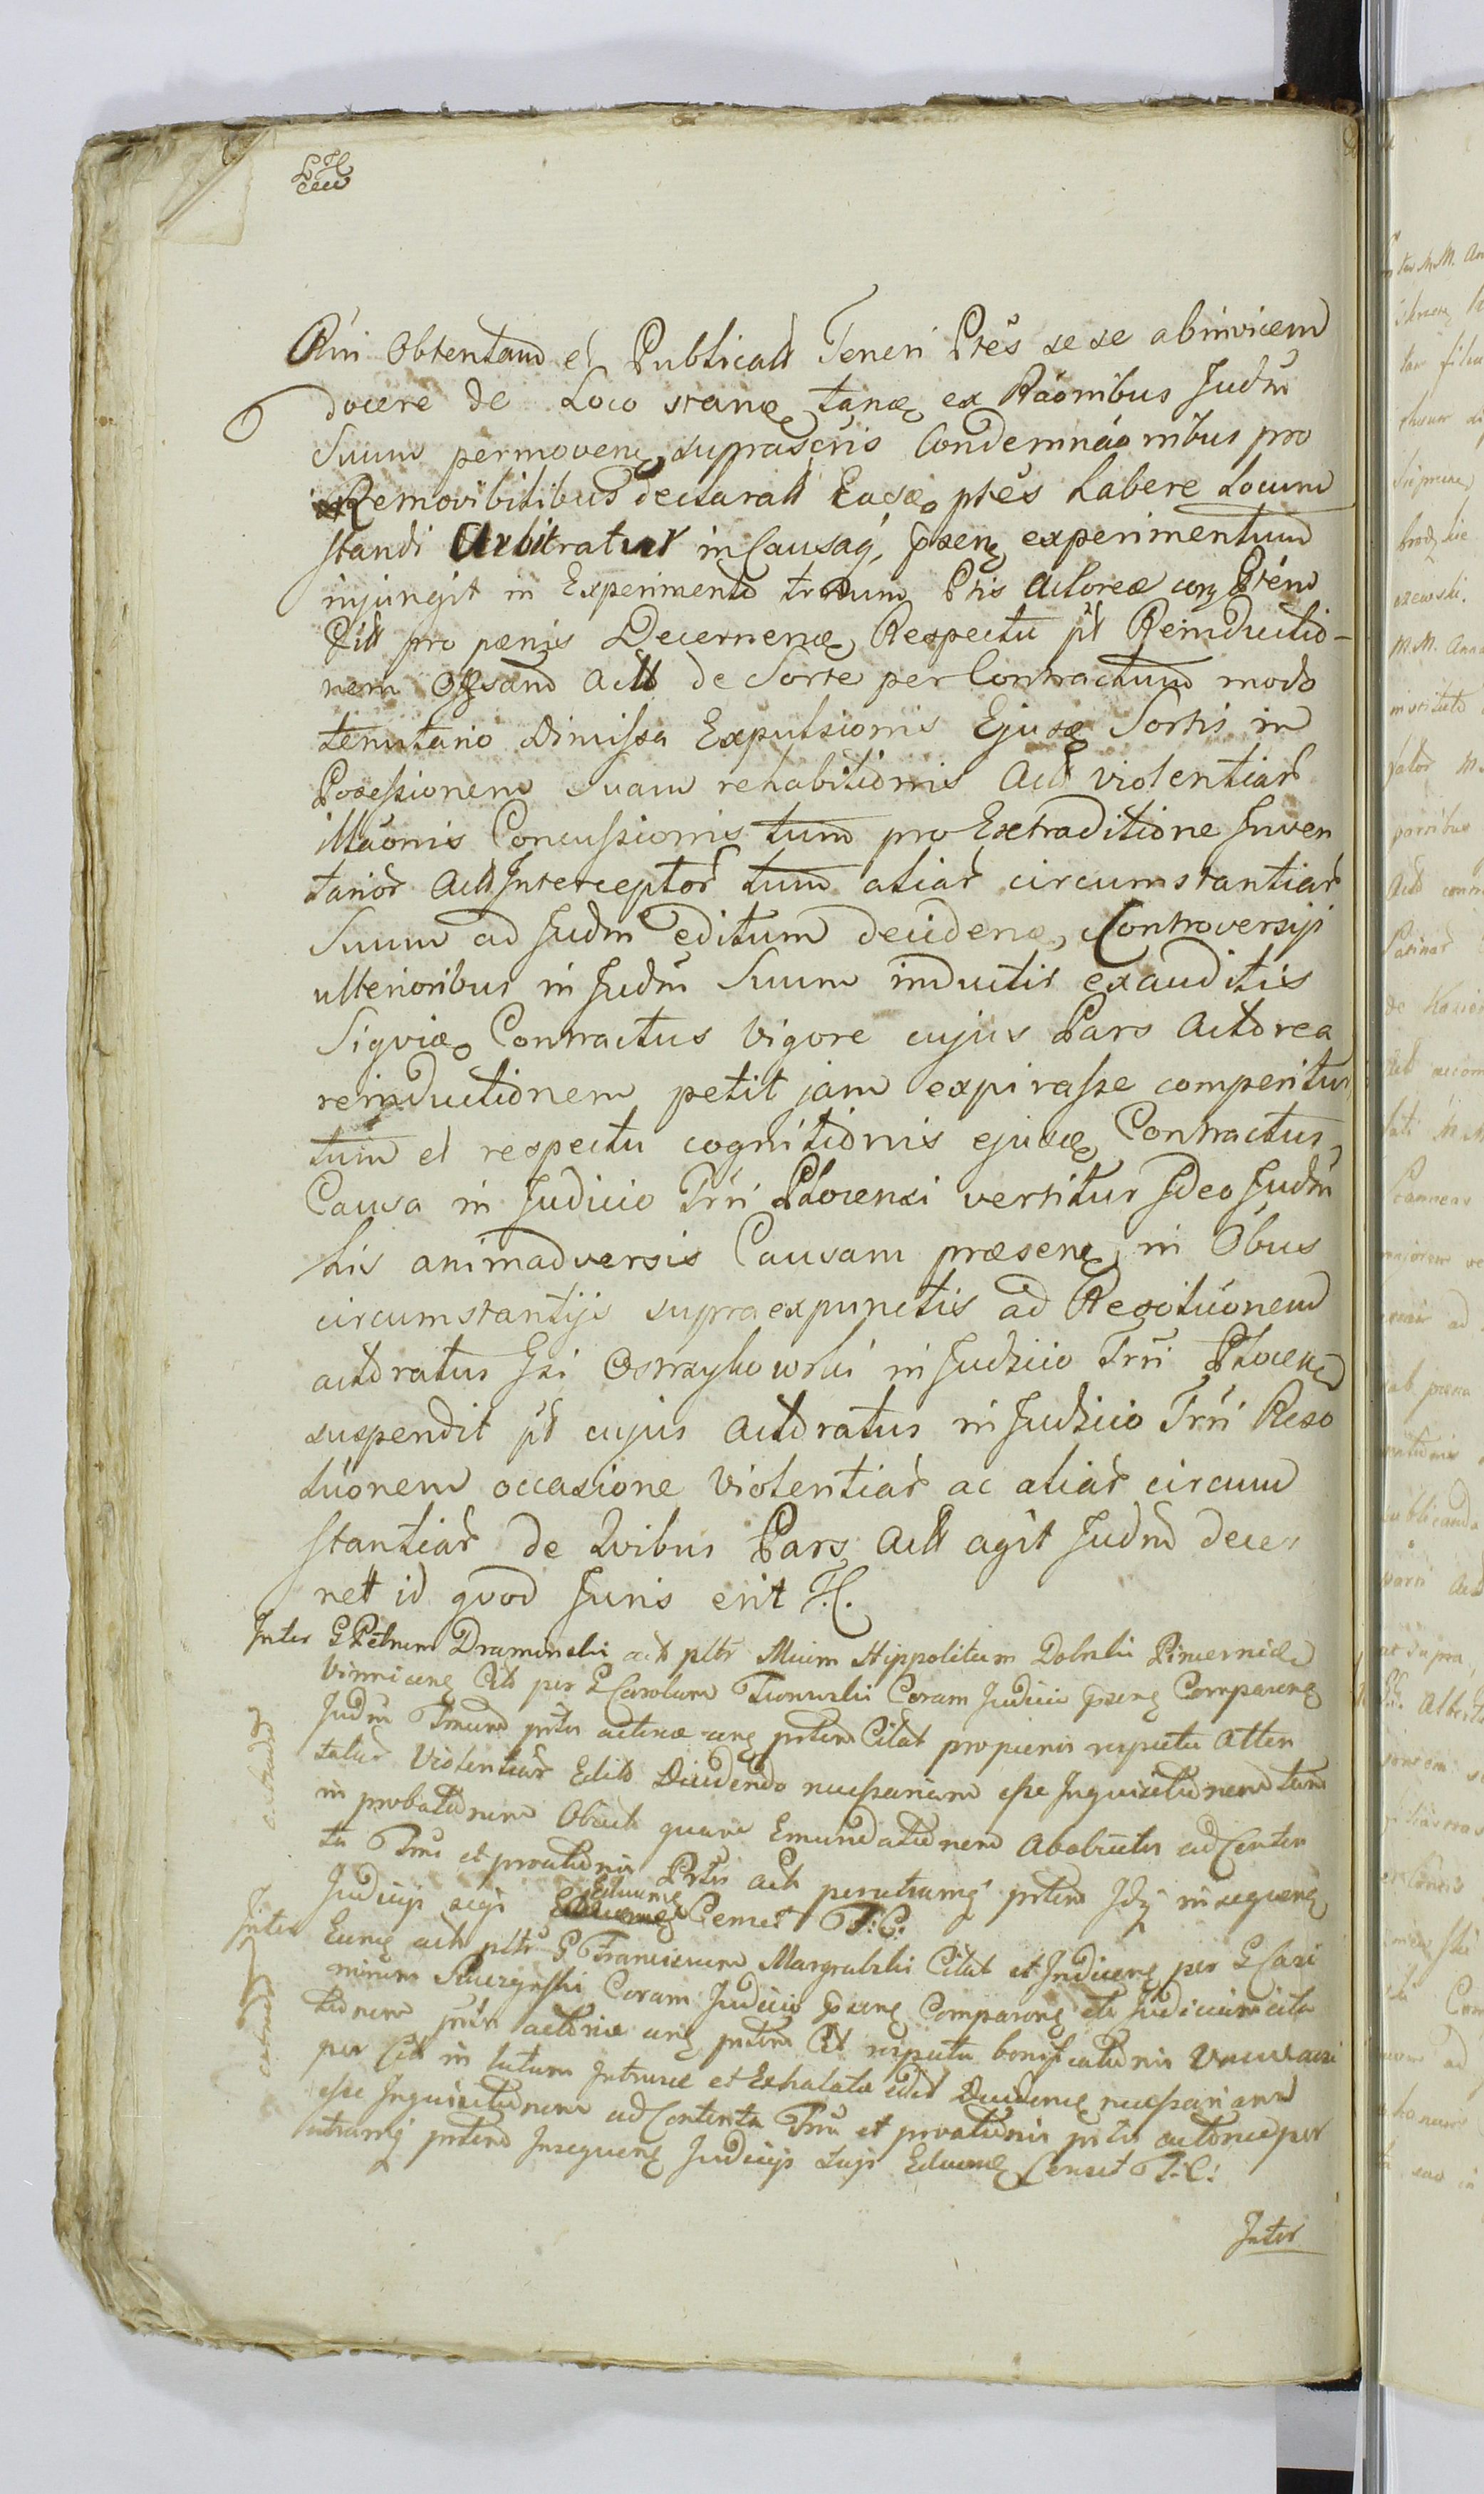 Rni Obtentam et Publicatt Teneri Ptes se se abinvicem
docere de Loco stane, tane, ex Raonibus Judm
Suum permovene, suprascris Condemnaonibus pro
Removibilibus declaratt Easde ptes habere Locum
standi Arbitratur in Causaq, psene experimentum
injungit in Experimento Ptis Actoreæ Ptem
Citt pro pœnis Decernene, Respectu pt Reinductio-
nem Actt de Sorte per Contractum modo
tenutario Dimissa Expulsionis Ejusde Sortis in
Possessionem Suam rehabitionis Actt violentiar
illaonis Concussionis tum pro Extraditione Inven
tarior Actt Interceptor tum aliar circumstantiar
Suum ad Judm editum decidene, Controversiji
ulterioribus in Judm Suum inductis exauditis
Siqvide Contractus Vigore cujus Pars Actorea
reinductionem petit jam expirasse comperitur
tum et respectu cognitionis ejusde, Contractus,
Causa in Judicio Trri Plocensi vertitur Ideo Judm
his animadversis Causam præsene, in Obus
circumstantijs supraexpunctis ad Resoluonem
actoratus Gsi Ostrzykowski in Judicio Trri Plocen
suspendit pt cujus Actoratus in Judicio Trri Reso
luonem occasione Violentiar ac aliar circum
stantiar de Qvibus Pars Actt agit Judm decer
net id qvod Juris erit T.C.
Inter G Petrum Draminski act pltr Mcum Hippolitum Dolnski Pincernidem
Vinnicens Citt per G Carolum Coram Judicio psene Comparene
Judm ptis actoreæ ptem Citat pro pœnis respectu Atten
tatar Violentiar Edito Decidendo necessariam esse Inquisitionem tum
in probationem Obducti quare Emundationem Abolucts ad Conten
ta Trmi et probationis Ptis act perutramq ptem Idq in sequene
Judicijs Legi Educene Censet T:C:
Inter Eune act pltr G Franciscum Margrabski Citat et Indicens per G Casi
mirum Sluczynski Coram Judicio psene Comparene
ptis actoreæ ptem Citt respectu bonificationis
per Citt in lutum Intrusæ et Exhalatæ edit Decidene necessariam
esse Inquisitionem ad Contenta Trmi et probationis ptis actoreæ per
utramq ptem Insequene Judicijs Legi Educene Censet T:C:
Inter